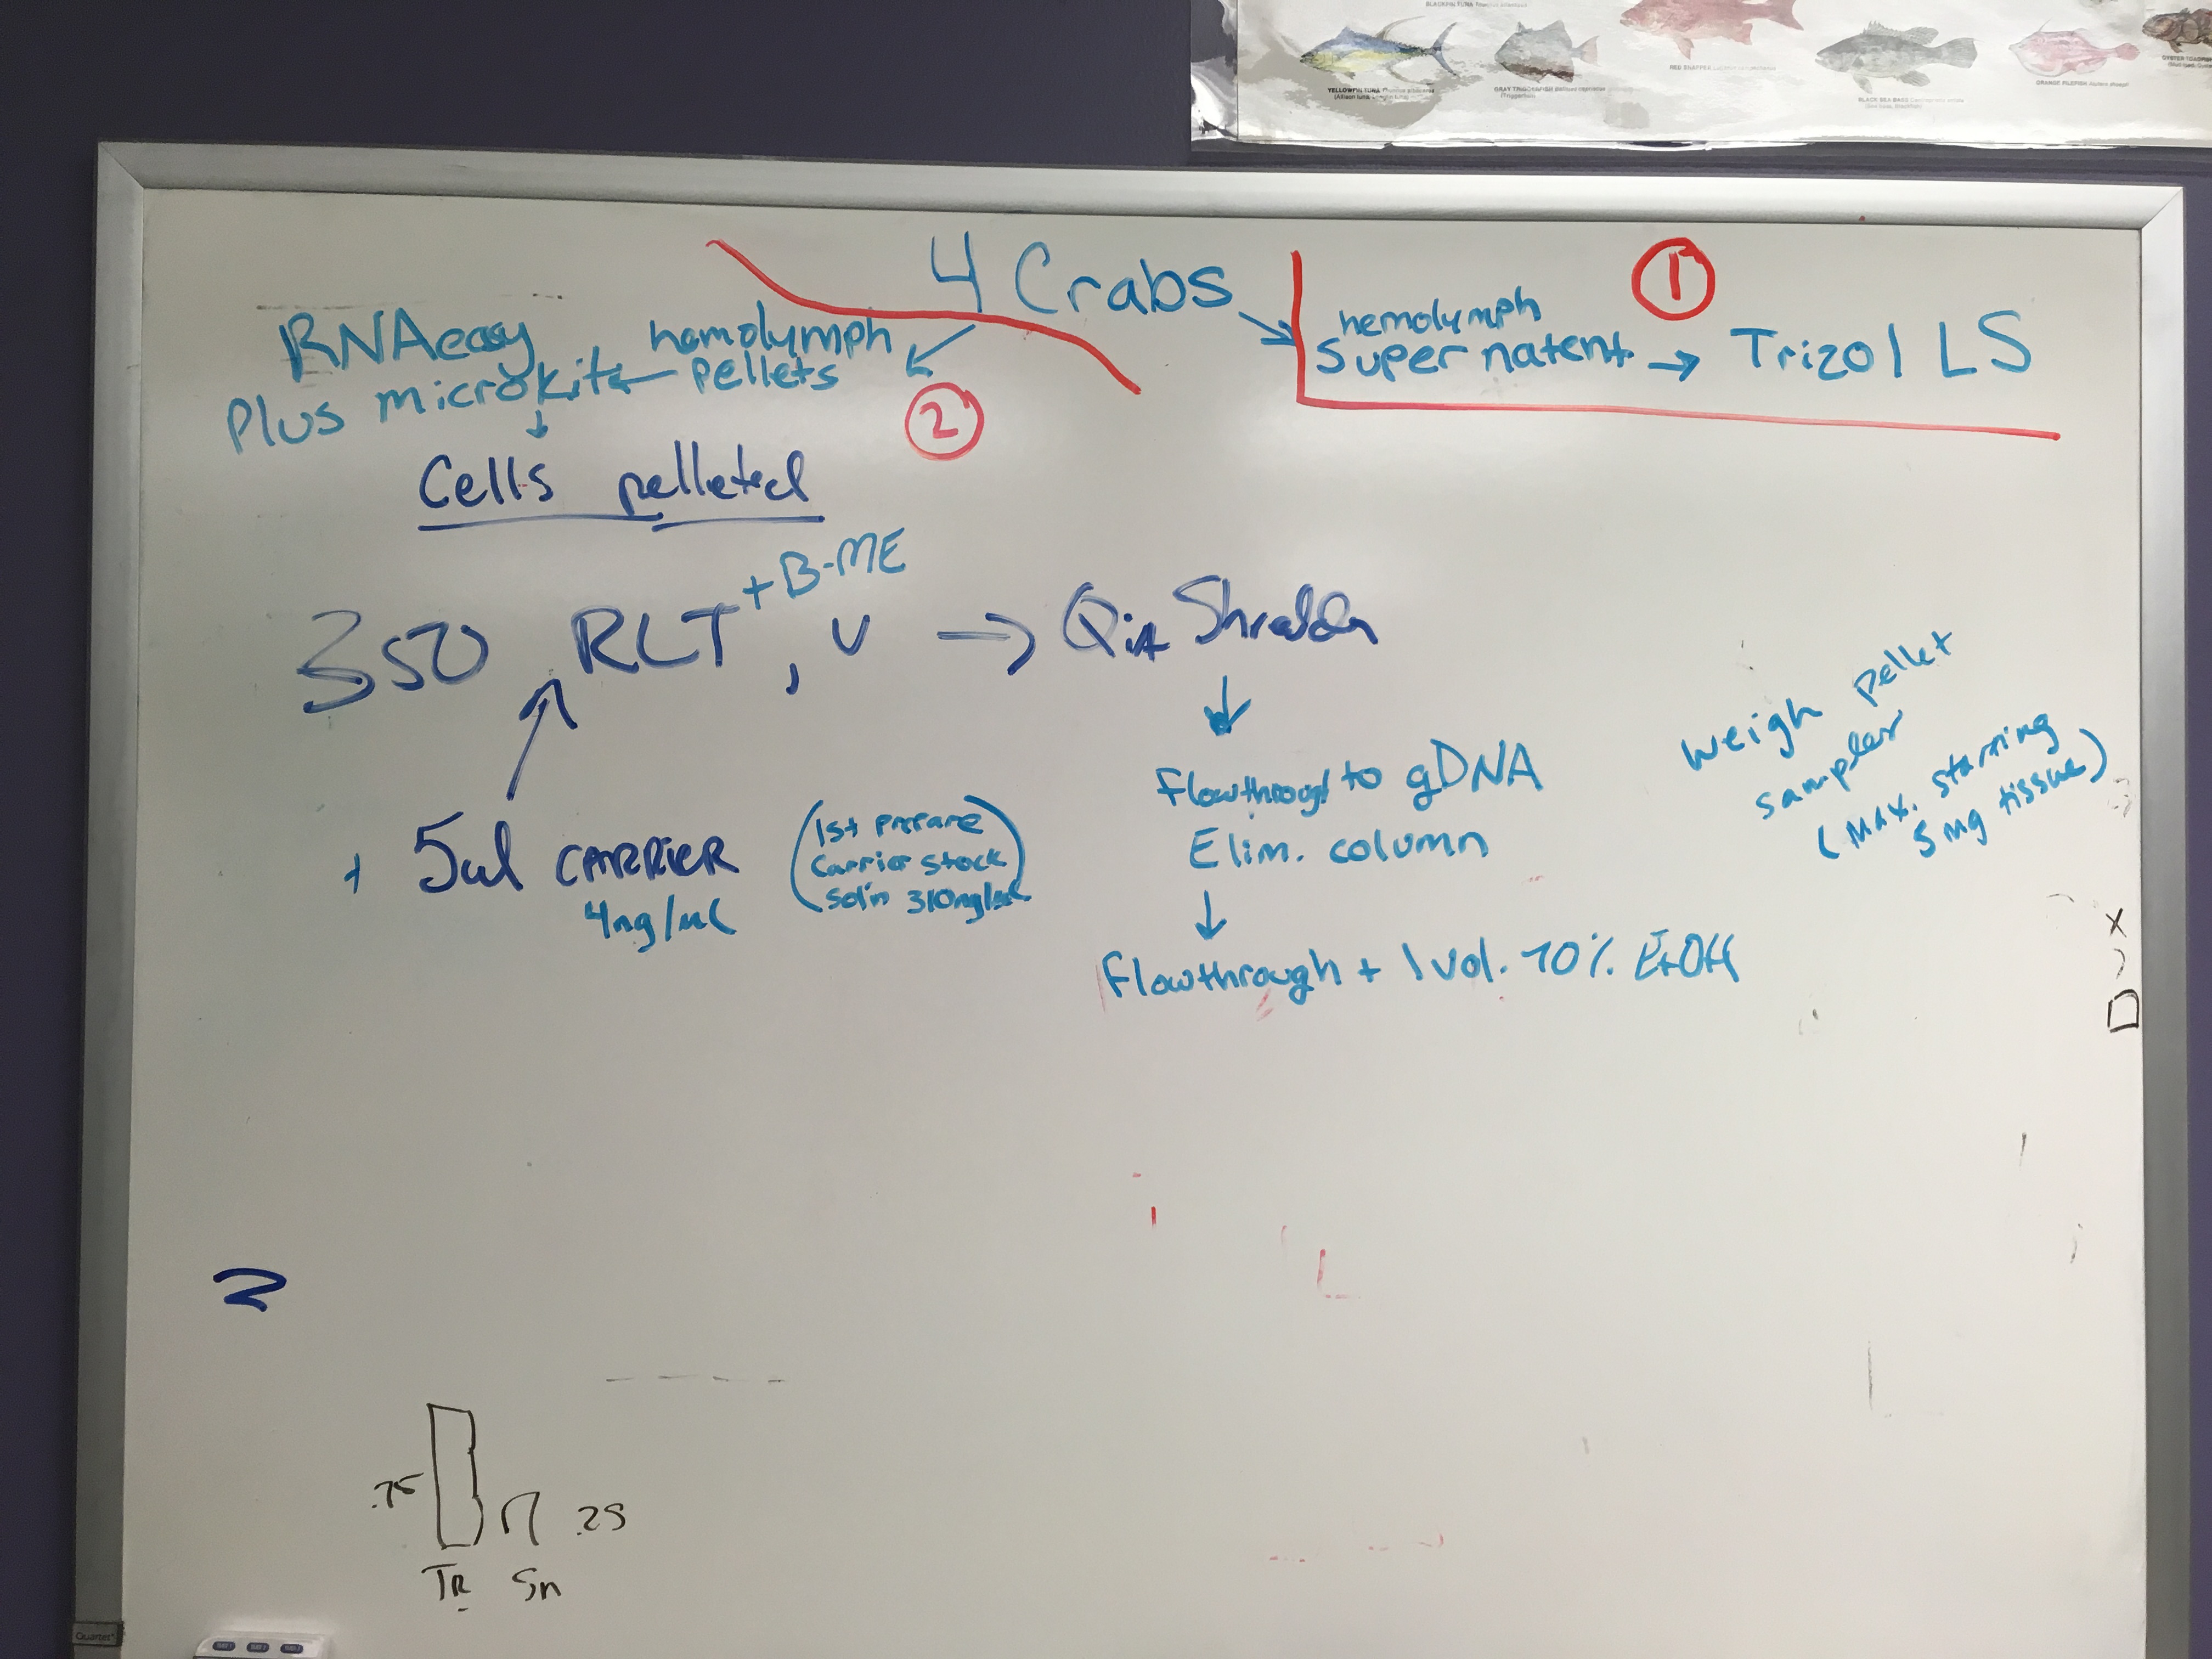 YELLOWFIN TUNA
GRAY TRIGGERFISH
(Triggerfish)
RED SNAPPER
BLACK SEA BASS
ORANGE FILEFISH
4 Crabs
1
hemolymph
Supernatent → Trizol LS
RNAeasy
Plus microkit ← hemolymph
pellets
2
↓
Cells pelleted
350 RLT + B-ME, v → QiA Shredder
+ 5ul CARRIER
4ng/uL
(1st prepare
Carrier stock
Sol'n 310ng/uL)
↓
Flowthrough to gDNA
Elim. column
↓
Flowthrough + 1 vol. 70% EtOH
Weigh pellet
samples
(Max. starting
5 mg tissue)
2
.75
.25
TR Sn
Quartet